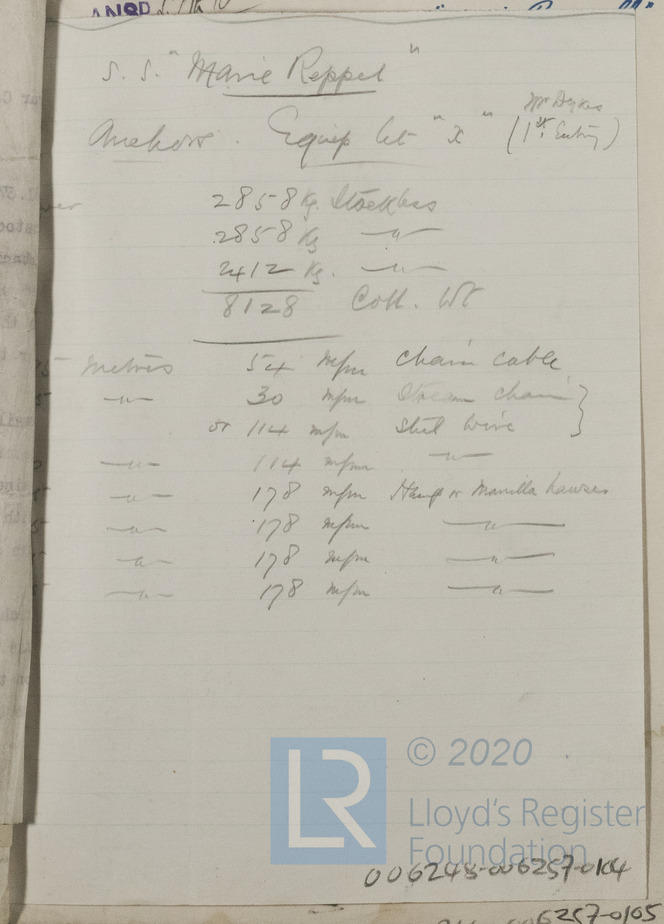 S.S. "Marie Reppel"
Mr Dykes
Anchors. Equip let "x" (1st Entry)
2858 Kg. Stockless
2858 Kg —"—
2412 Kg. —"—
8128 Coll. Wt
metres 54 m/m chain cable
—"— 30 m/m Stream chain }
or 114 m/m steel wire
—"— 114 m/m —"—
—"— 178 m/m Hemp or Manilla hawser
—"— 178 m/m —"—
—"— 178 m/m —"—
—"— 178 m/m —"—
LR © 2020
Lloyd's Register
Foundation
006248-006257-0104
6257-0105